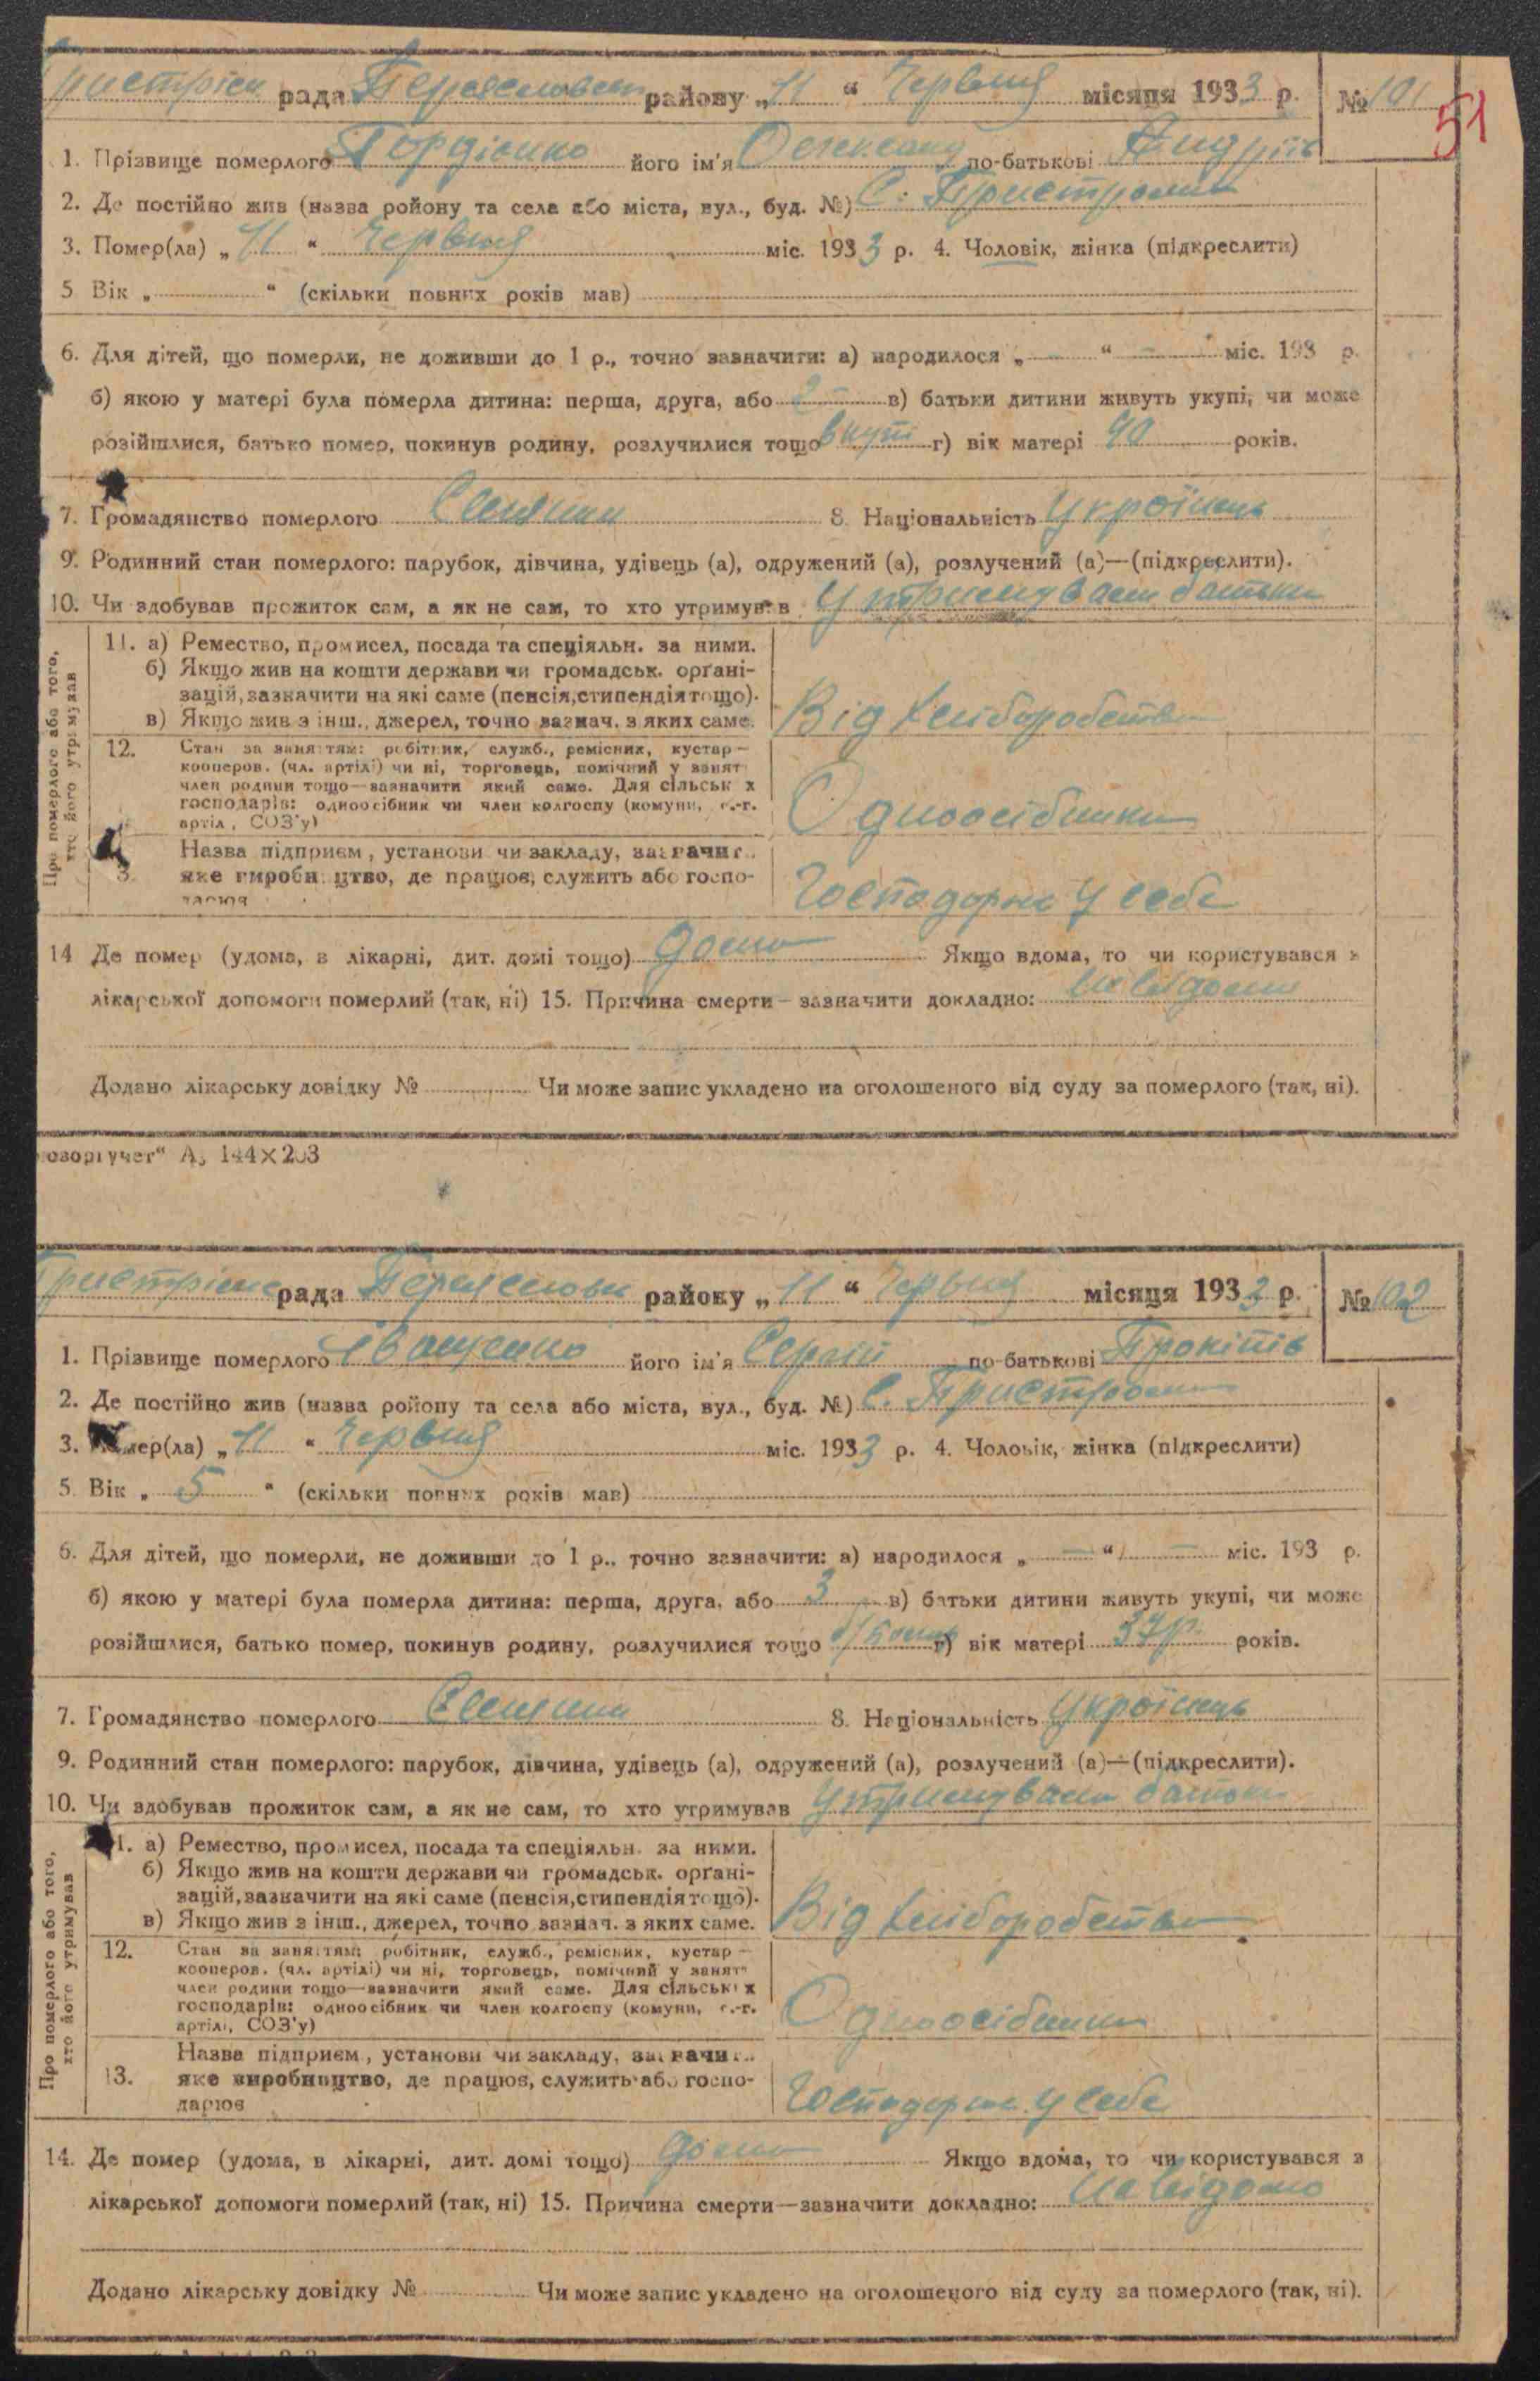 рада Переяславськ району „11 “ Червня місяця 1933 р. № 101
51
1. Прізвище померлого Гордієнко його ім'я Олександ по-батькові Андріїв
2. Де постійно жив (назва ройону та села або міста, вул., буд. №) С. Пристроми
3. Помер(ла) „ 11 “ Червня міс. 1933 р. 4. Чоловік, жінка (підкреслити)
5 Вік „ “ (скільки повних років мав)
6. Для дітей, що померли, не доживши до 1 р., точно зазначити: а) народилося „ — “ — міс. 193 р.
б) якою у матері була померла дитина: перша, друга, або 2 в) батьки дитини живуть укупі, чи може
розійшлися, батько помер, покинув родину, розлучилися тощо вкупі г) вік матері 40 років.
7. Громадянство померлого 8. Національність Україньць
9. Родинний стан померлого: парубок, дівчина, удівець (а), одружений (а), розлучений (а)—(підкреслити).
10. Чи здобував прожиток сам, а як не сам, то хто утримував Утримували батьки
Про померлого або того, хто його утримував
11. а) Ремество, промисел, посада та спеціяльн. за ними.
б) Якщо жив на кошти держави чи громадськ. орґані-
зацій, зазначити на які саме (пенсія, стипендія тощо).
в) Якщо жив з інш., джерел, точно зазнач. з яких саме.
Від хліборобства
12. Стан за заняттям: робітник, служб., ремісник, кустар—
кооперов. (чл. артілі) чи ні, торговець, помічний у занят
член родини тощо—зазначити який саме. Для сільськ х
господарів: одноосібник чи член колгоспу (комуни, с.-г.
артіл , СОЗ'у)
Одноосібники
Назва підприєм , установи чи закладу, зазначит..
3. яке виробництво, де працює, служить або госпо-
дарює
Господорне у себе
14 Де помер (удома, в лікарні, дит. домі тощо) дома Якщо вдома, то чи користувався з
лікарської допомоги померлий (так, ні) 15. Причина смерти—зазначити докладно: не відомо
Додано лікарську довідку № Чи може запис укладено на оголошеного від суду за померлого (так, ні).
озоргучет“ А₅ 144×203
рада Переяславськ району „11 “ Червня місяця 1933 р. № 102
1. Прізвище померлого Іващенко його ім'я Сергій по-батькові Прокіпів
2. Де постійно жив (назва ройону та села або міста, вул., буд. №) С. Пристроми
3. Помер(ла) „ 11 “ Червня міс. 1933 р. 4. Чоловік, жінка (підкреслити)
5 Вік „ 5 “ (скільки повних років мав)
6. Для дітей, що померли, не доживши до 1 р., точно зазначити: а) народилося „ — “ — міс. 193 р.
б) якою у матері була померла дитина: перша, друга, або 3 в) батьки дитини живуть укупі, чи може
розійшлися, батько помер, покинув родину, розлучилися тощо г) вік матері 37р. років.
7. Громадянство померлого 8. Національність Україньць
9. Родинний стан померлого: парубок, дівчина, удівець (а), одружений (а), розлучений (а)—(підкреслити).
10. Чи здобував прожиток сам, а як не сам, то хто утримував Утримували батьки
Про померлого або того, хто його утримував
11. а) Ремество, промисел, посада та спеціяльн. за ними.
б) Якщо жив на кошти держави чи громадськ. орґані-
зацій, зазначити на які саме (пенсія, стипендія тощо).
в) Якщо жив з інш., джерел, точно зазнач. з яких саме.
Від хліборобства
12. Стан за заняттям: робітник, служб., ремісник, кустар—
кооперов. (чл. артілі) чи ні, торговець, помічний у занят
член родини тощо—зазначити який саме. Для сільських
господарів: одноосібник чи член колгоспу (комуни, с.-г.
артілі, СОЗ'у)
Одноосібники
Назва підприєм , установи чи закладу, зазначит..
13. яке виробництво, де працює, служить або госпо-
дарює
Господорне у себе
14. Де помер (удома, в лікарні, дит. домі тощо) дома Якщо вдома, то чи користувався з
лікарської допомоги померлий (так, ні) 15. Причина смерти—зазначити докладно: не відомо
Додано лікарську довідку № Чи може запис укладено на оголошеного від суду за померлого (так, ні).